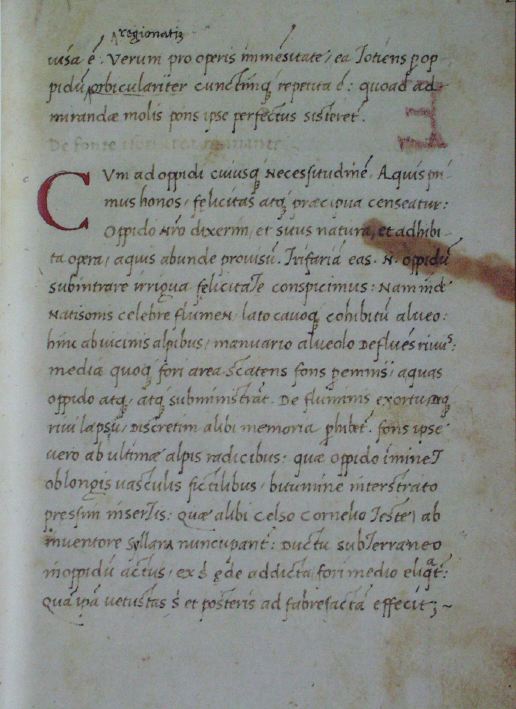 regionatiȝ
uisa ē. Verum pro operis immēsitate, ea Totiens ꝑ op
pidū orbiculariter cunctimq repetita ē: quoad ad
mirandæ molis pons ipse perfectus sisteret.
De fonte
Cum ad oppidi cuiusq Necessitudinē. Aquis pri
mus honos, felicitas atq præcipua censeatur:
Oppido Nr̄o dixerim, et situs natura, et adhibi-
ta opera, aquis abunde provisū. Trifariā eas. N. oppidū
subintrare irrigua felicitate conspicimus: Nam inde
Natisonis celebre flumeN, lato cavoq cohibitū alveo:
hinc ab vicinis alpibus, manuario alveolo Defluēs rivus:
media quoq fori area scatens fons geminis, aquas
oppido atq, atq subministrat. De fluminis exortu, atq
rivi lapsu, Discretim alibi memoria ꝑhibet. fons ipse
vero ab ultimæ alpis radicibus: quæ oppido imineT
oblongis vasculis fictilibus, bitumine interstrato
pressim insertis: Quæ alibi Celso Cornelio Teste, ab
inventore Syllara nuncupant: Ductu subTerraneo
in oppidū actus, ex addicta, fori medio eliqat:
Quā ipā vetustas et posteris ad fabrefactā effecit;~